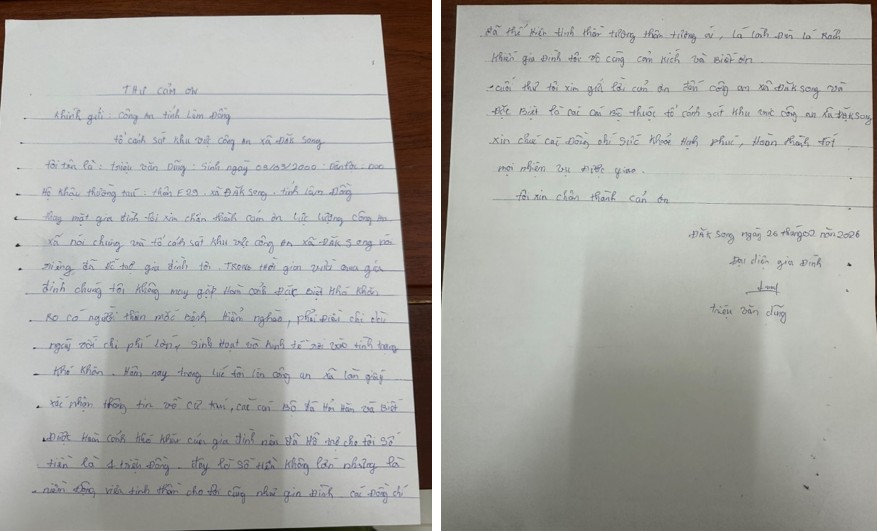 THƯ CẢM ƠN
Kính gửi: Công an tỉnh Lâm Đồng
Tổ cảnh sát khu vực công an xã Đắk Song
Tôi tên là: Triệu Văn Dũng: Sinh ngày 05/09/2000: Dân tộc: Dao
Hộ khẩu thường trú: thôn E29. xã Đắk Song. tỉnh Lâm Đồng
Thay mặt gia đình tôi xin chân thành cảm ơn lực lượng công an
xã nói chung và tổ cảnh sát khu vực công an xã Đắk Song nói
riêng đã hỗ trợ gia đình tôi. Trong thời gian vừa qua gia
đình chúng tôi không may gặp hoàn cảnh đặc biệt khó khăn
Do có người thân mắc bệnh hiểm nghèo, phải điều trị dài
ngày với chi phí lớn, sinh hoạt và kinh tế rơi vào tình trạng
khó khăn. Hôm nay trong lúc tôi lên công an xã làm giấy
xác nhận thông tin về cư trú, các cán bộ đã hỏi han và biết
được hoàn cảnh khó khăn của gia đình nên đã hỗ trợ cho tôi số
tiền là 1 triệu đồng. Đây là số tiền không lớn nhưng là
niềm động viên tinh thần cho tôi cũng như gia đình. Các đồng chí
đã thể hiện tinh thần tương thân tương ái, lá lành đùm lá rách
khiến gia đình tôi vô cùng cảm kích và biết ơn.
Cuối thư tôi xin gửi lời cảm ơn đến công an xã Đắk Song và
đặc biệt là các cán bộ thuộc tổ cảnh sát khu vực công an xã Đắk Song
xin chúc các đồng chí sức khỏe hạnh phúc, hoàn thành tốt
mọi nhiệm vụ được giao.
Tôi xin chân thành cảm ơn
Đắk Song ngày 26 tháng 02 năm 2026
Đại diện gia đình
Triệu Văn Dũng